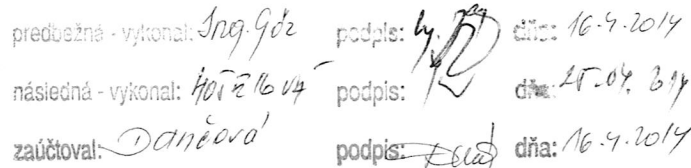 predbežná - vykonal: Ing. Gör podpis: dňa: 16.4.2014
následná - vykonal: podpis: dňa: 25.04.2014
zaúčtoval: Dančová podpis: dňa: 16.4.2014